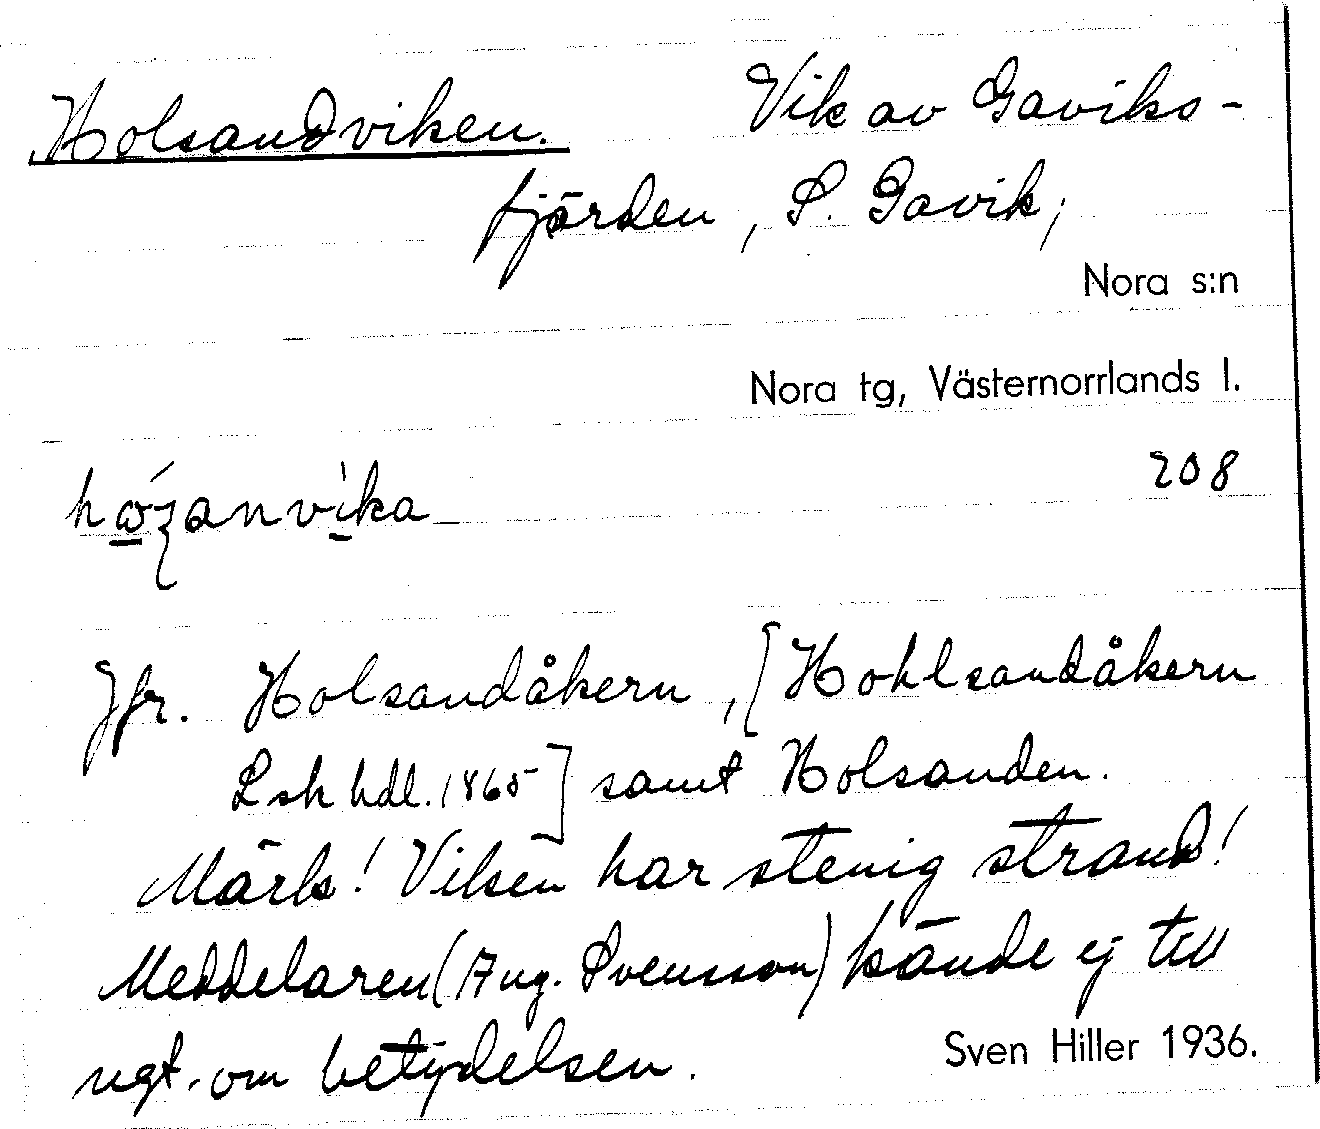 Holsandviken. Vik av Gaviks-
fjärden, S. Gavik;
Nora s:n
Nora tg, Västernorrlands l.
208
Jfr. Holsandåkern, [Hohlsandåkern
Lsk hdl. 1865] samt Holsanden.
Märk! Viken har stenig strand!
Meddelaren (Aug. Svensson) kände ej till
ngt. om betydelsen.
Sven Hiller 1936.